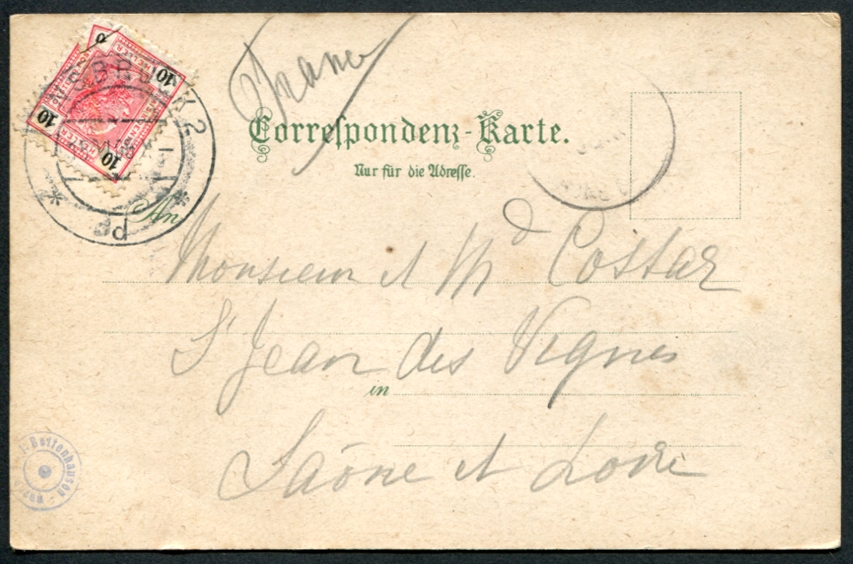 France
Correspondenz-Karte.
Nur für die Adresse.
An
Monsieur et Md Costaz
St Jean des Vignes
in
Saône et Loire
10
10
10
SBRUCK 2